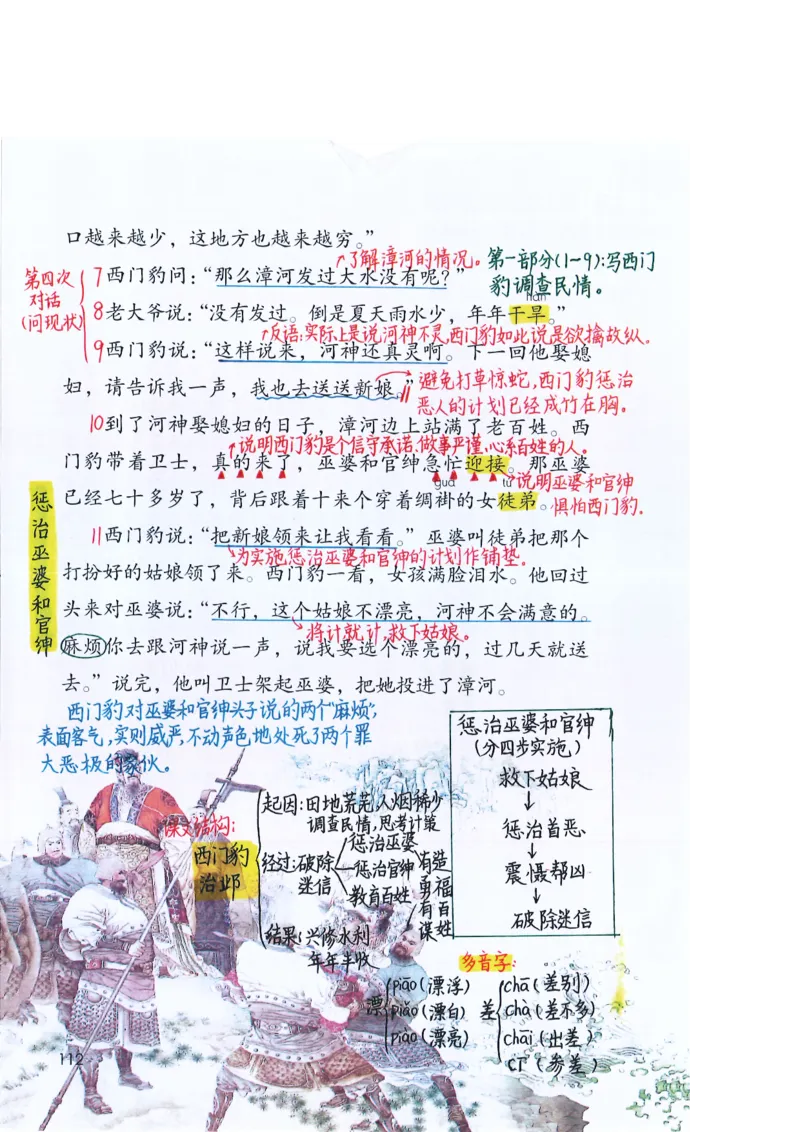 口越来越少，这地方也越来越穷。”
了解漳河的情况。
第一部分(1~9):写西门
豹调查民情。
第四次
对话
(问现状)
7西门豹问：“那么漳河发过大水没有呢？”
hàn
8老大爷说：“没有发过。倒是夏天雨水少，年年干旱。”
反语:实际上是说河神不灵,西门豹如此说是欲擒故纵。
9西门豹说：“这样说来，河神还真灵啊。下一回他娶媳
妇，请告诉我一声，我也去送送新娘。”
避免打草惊蛇,西门豹惩治
恶人的计划已经成竹在胸。
10到了河神娶媳妇的日子，漳河边上站满了老百姓。西
说明西门豹是个信守承诺、做事严谨、心系百姓的人。
门豹带着卫士，真的来了，巫婆和官绅急忙迎接。那巫婆
guà
tú
说明巫婆和官绅
惧怕西门豹.
已经七十多岁了，背后跟着十来个穿着绸褂的女徒弟。
惩治巫婆和官绅
11西门豹说：“把新娘领来让我看看。”巫婆叫徒弟把那个
为实施惩治巫婆和官绅的计划作铺垫.
打扮好的姑娘领了来。西门豹一看，女孩满脸泪水。他回过
头来对巫婆说：“不行，这个姑娘不漂亮，河神不会满意的。
将计就计,救下姑娘。
麻烦你去跟河神说一声，说我要选个漂亮的，过几天就送
去。”说完，他叫卫士架起巫婆，把她投进了漳河。
西门豹对巫婆和官绅头子说的两个“麻烦”,
表面客气,实则威严,不动声色地处死了两个罪
大恶极的家伙。
惩治巫婆和官绅
(分四步实施)
救下姑娘
↓
惩治首恶
↓
震慑帮凶
↓
破除迷信
课文结构:
西门豹
治邺
起因:田地荒芜,人烟稀少
调查民情,思考计策
经过:破除
迷信
惩治巫婆
惩治官绅
教育百姓
结果:兴修水利
年年丰收
有造
勇福
有百
谋姓
多音字:
漂
piāo(漂浮)
piǎo(漂白)
piào(漂亮)
差
chā(差别)
chà(差不多)
chāi(出差)
cī(参差)
112